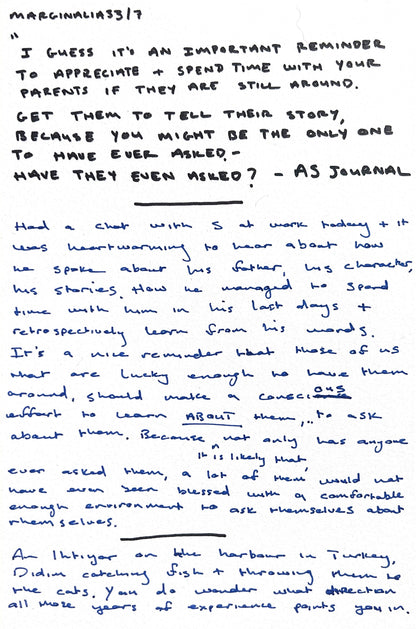 MARGINALIA33/7
"
I GUESS IT'S AN IMPORTANT REMINDER
TO APPRECIATE + SPEND TIME WITH YOUR
PARENTS IF THEY ARE STILL AROUND.
GET THEM TO TELL THEIR STORY,
BECAUSE YOU MIGHT BE THE ONLY ONE
TO HAVE EVER ASKED.-
HAVE THEY EVEN ASKED? - AS JOURNAL
Had a chat with S at work today + it
was heartwarming to hear about how
he spoke about his father, his character,
his stories. How he managed to spend
time with him in his last days +
retrospectively learn from his words.
It's a nice reminder that those of us
that are lucky enough to have them
around, should make a conscious
effort to learn ABOUT them,.. to ask
about them. Because not only has anyone
it is likely that
ever asked them, a lot of them would not
have even been blessed with a comfortable
enough environment to ask themselves about
themselves.
An Ihtiyar on the harbour in Turkey,
Didim catching fish + throwing them to
the cats. You do wonder what direction
all those years of experience points you in.